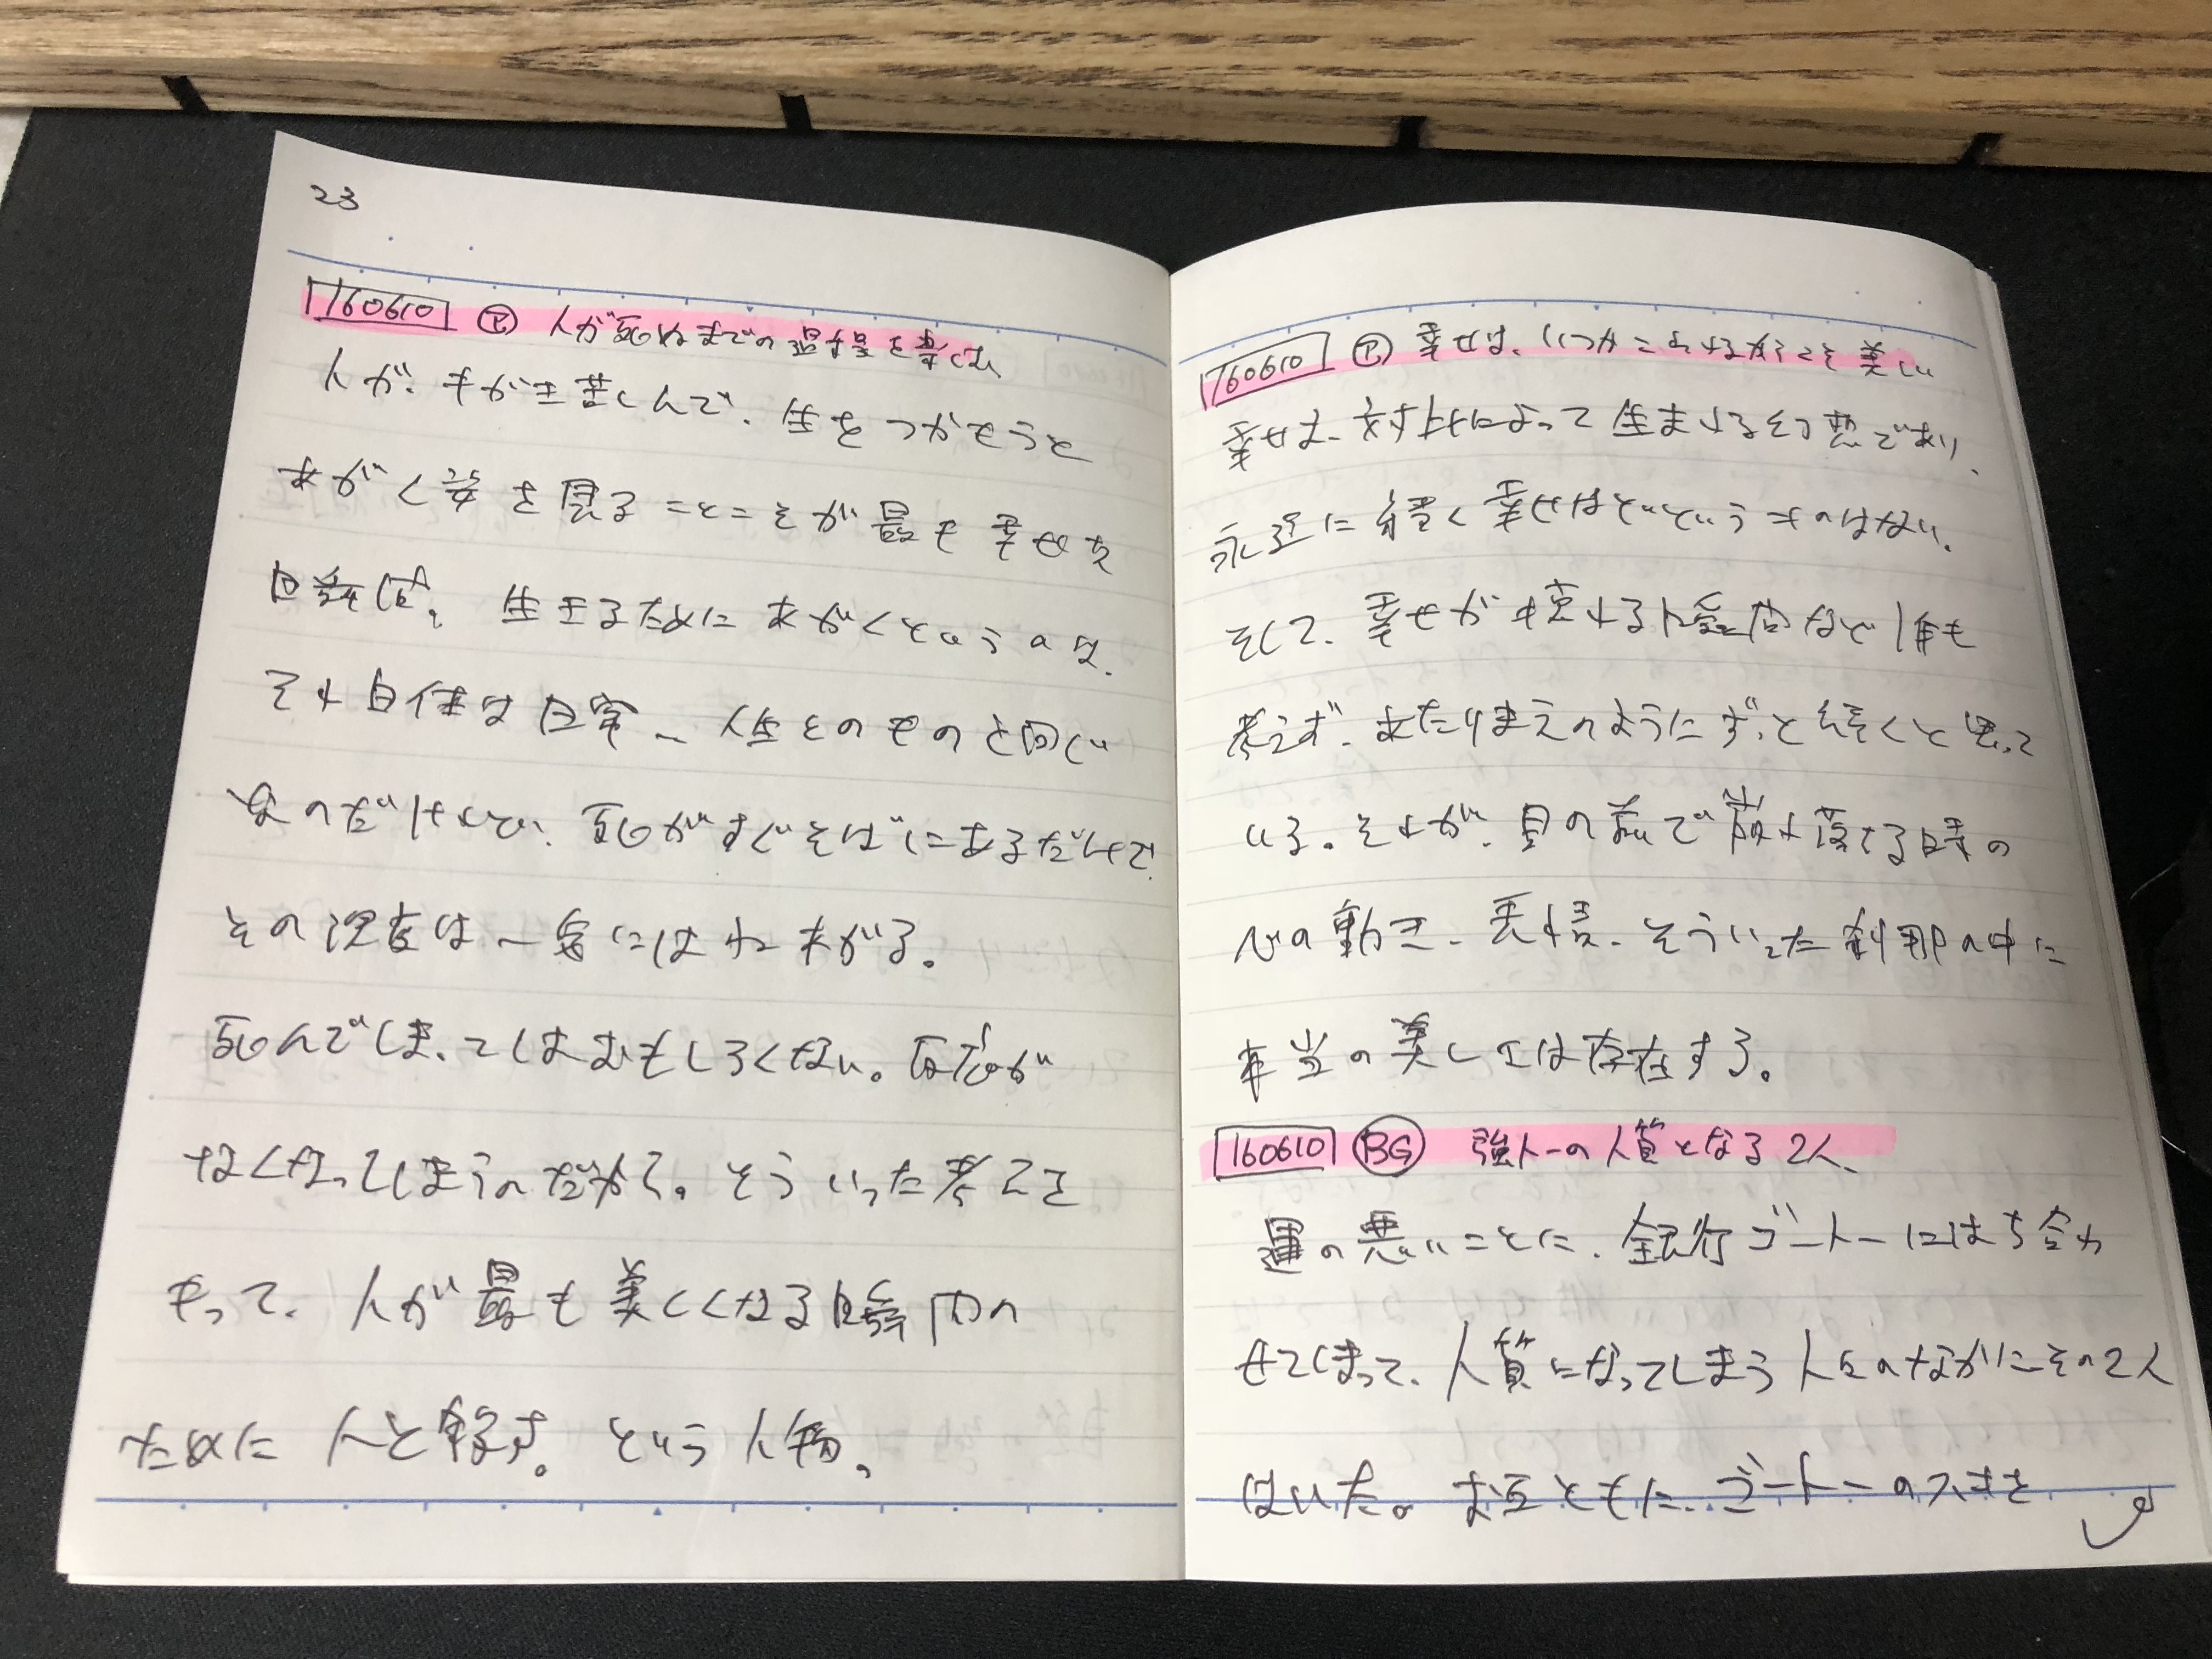 23
160610 P 人が死ぬまでの過程を楽しむ
人が、もがき苦しんで、生をつかもうと
あがく姿を見ることこそが最も幸せな
瞬間。生きるためにあがくというのは、
それ自体は日常、人生そのものと同じ
なのだけれど、死がすぐそばにあるだけで
その濃度は一気にはね上がる。
死んでしまってはおもしろくない。反応が
なくなってしまうのだから。そういった考えを
もって、人が最も美しくなる瞬間の
ために人と
。という人物。
160610 P 幸せは、いつかこわれるからこそ美しい
幸せは、対比によって生まれる幻想であり、
永遠に続く幸せなどというものはない。
そして、幸せが壊れる瞬間など誰も
考えず、あたりまえのようにずっと続くと思って
いる。それが、目の前で崩れ落ちる時の
心の動き、表情、そういった刹那の中に
本当の美しさは存在する。
160610 BG 強トーの人質となる2人、
運の悪いことに、銀行ゴートーにはち合わ
せてしまって、人質になってしまう人々のなかにその2人
はいた。お互ともに、ゴートーのスキを